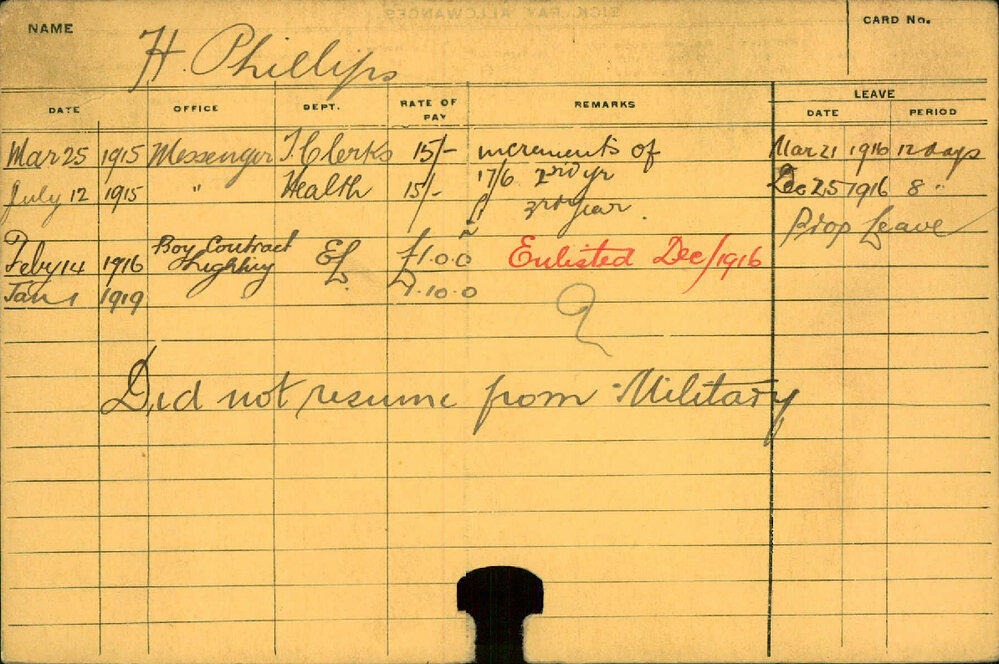 NAME H. Phillips CARD No.
DATE OFFICE DEPT. RATE OF PAY REMARKS LEAVE
DATE PERIOD
Mar 25 1915 Messenger T. Clerks 15/- increments of Mar 21 1916 12 days
July 12 1915 " Health 15/- 17/6 2nd yr Dec 25 1916 8 "
3rd year. Prop Leave
Feby 14 1916 Boy Contract Lighting EL. £1.0.0 Enlisted Dec/1916
Jan 1 1919 1.10.0
Did not resume from Military